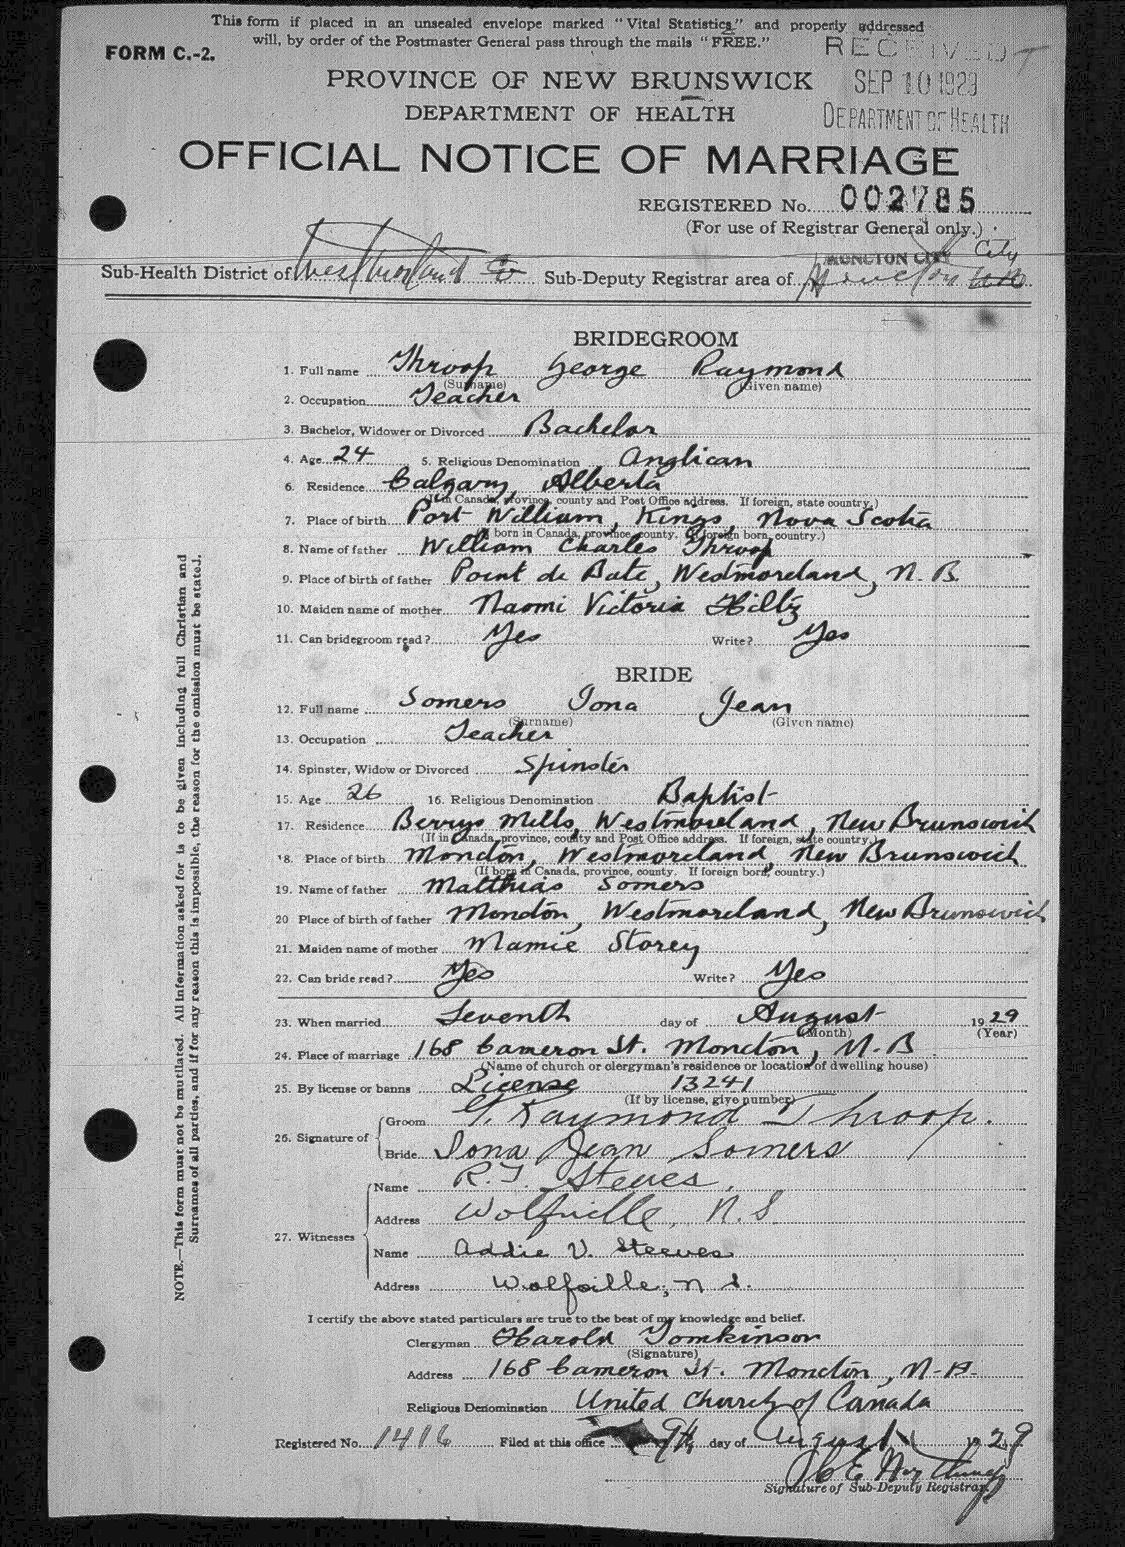 This form if placed in an unsealed envelope marked "Vital Statistics" and properly addressed
will, by order of the Postmaster General pass through the mails "FREE."
FORM C.-2.
RECEIVED
SEP 10 1929
DEPARTMENT OF HEALTH
PROVINCE OF NEW BRUNSWICK
DEPARTMENT OF HEALTH
OFFICIAL NOTICE OF MARRIAGE
REGISTERED No. 002785
(For use of Registrar General only.)
MONCTON CITY City
Sub-Health District of Westmorland Co Sub-Deputy Registrar area of Moncton
BRIDEGROOM
1. Full name Throop George Raymond
(Surname) (Given name)
2. Occupation Teacher
3. Bachelor, Widower or Divorced Bachelor
4. Age 24 5. Religious Denomination Anglican
6. Residence Calgary, Alberta
(If in Canada, province, county and Post Office address. If foreign, state country.)
7. Place of birth Port William, Kings, Nova Scotia
(If born in Canada, province, county. If foreign born, country.)
8. Name of father William Charles Throop
9. Place of birth of father Point de Bute, Westmoreland, N.B.
10. Maiden name of mother Naomi Victoria Hiltz
11. Can bridegroom read? Yes Write? Yes
BRIDE
12. Full name Somers Iona Jean
(Surname) (Given name)
13. Occupation Teacher
14. Spinster, Widow or Divorced Spinster
15. Age 26 16. Religious Denomination Baptist
17. Residence Berrys Mills, Westmoreland, New Brunswick
(If in Canada, province, county and Post Office address. If foreign, state country.)
18. Place of birth Moncton, Westmoreland, New Brunswick
(If born in Canada, province, county. If foreign born, country.)
19. Name of father Matthias Somers
20 Place of birth of father Moncton, Westmoreland, New Brunswick
21. Maiden name of mother Mamie Storey
22. Can bride read? Yes Write? Yes
23. When married Seventh day of August 1929
(Month) (Year)
24. Place of marriage 168 Cameron St. Moncton, N.B.
(Name of church or clergyman's residence or location of dwelling house)
25. By license or banns License 13241
(If by license, give number)
26. Signature of
Groom G. Raymond Throop.
Bride Iona Jean Somers
27. Witnesses
Name R.T. Steeves.
Address Wolfville, N.S.
Name Addie V. Steeves
Address Wolfville, N.S.
I certify the above stated particulars are true to the best of my knowledge and belief.
Clergyman Harold Tomkinson
(Signature)
Address 168 Cameron St. Moncton, N.B.
Religious Denomination United Church of Canada
Registered No. 1416 Filed at this office 9th day of August 1929
Signature of Sub-Deputy Registrar.
NOTE.—This form must not be mutilated. All information asked for is to be given including full Christian and
Surnames of all parties, and if for any reason this is impossible, the reason for the omission must be stated.